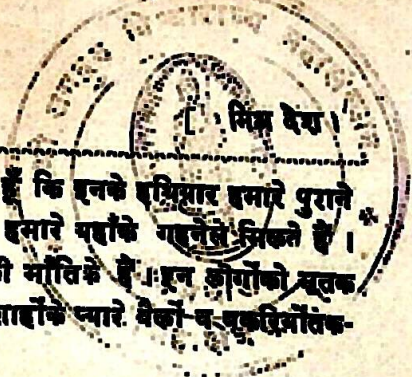 [ मिश्र देश ।
हूँ कि इनके हथियार हमारे पुराने
हमारे यहाँके गहनेसे मिलते हैं ।
की भाँतिके हैं । इन लोगोंको मृतक
प्यारे बैलों व बकरियोंतक-